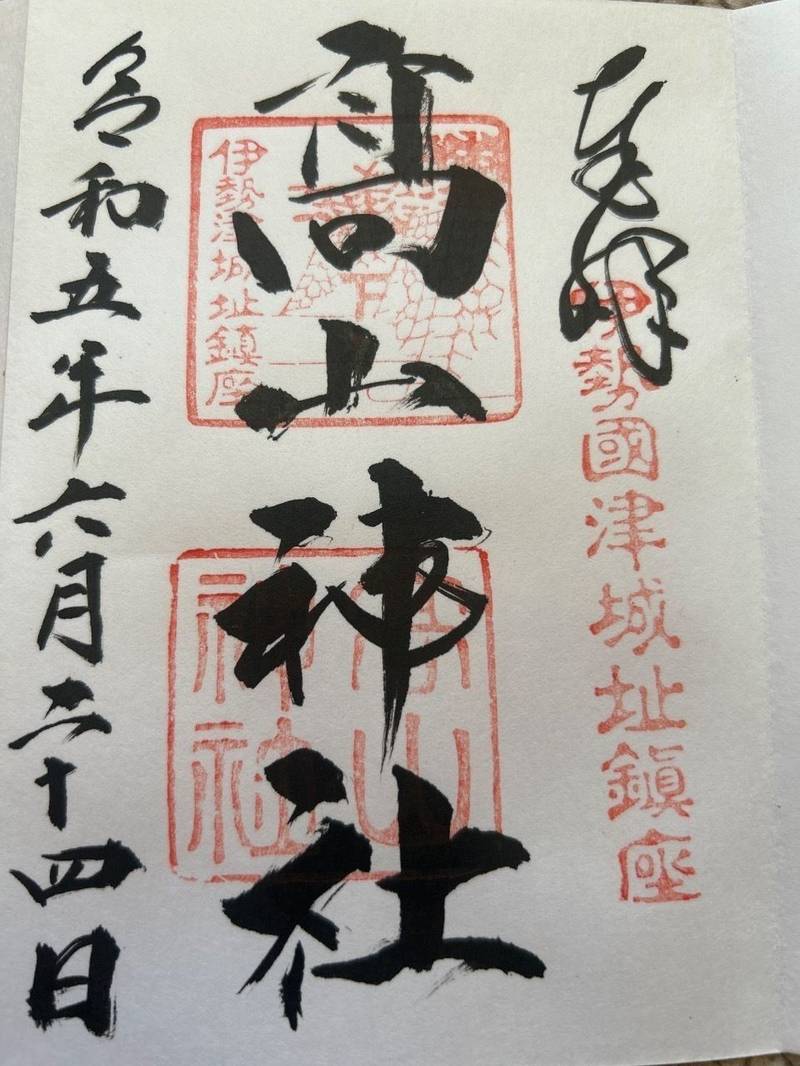 奉拝
伊勢國津城址鎮座
高山神社
伊勢津城址鎮座
高山神社
令和五年六月二十四日